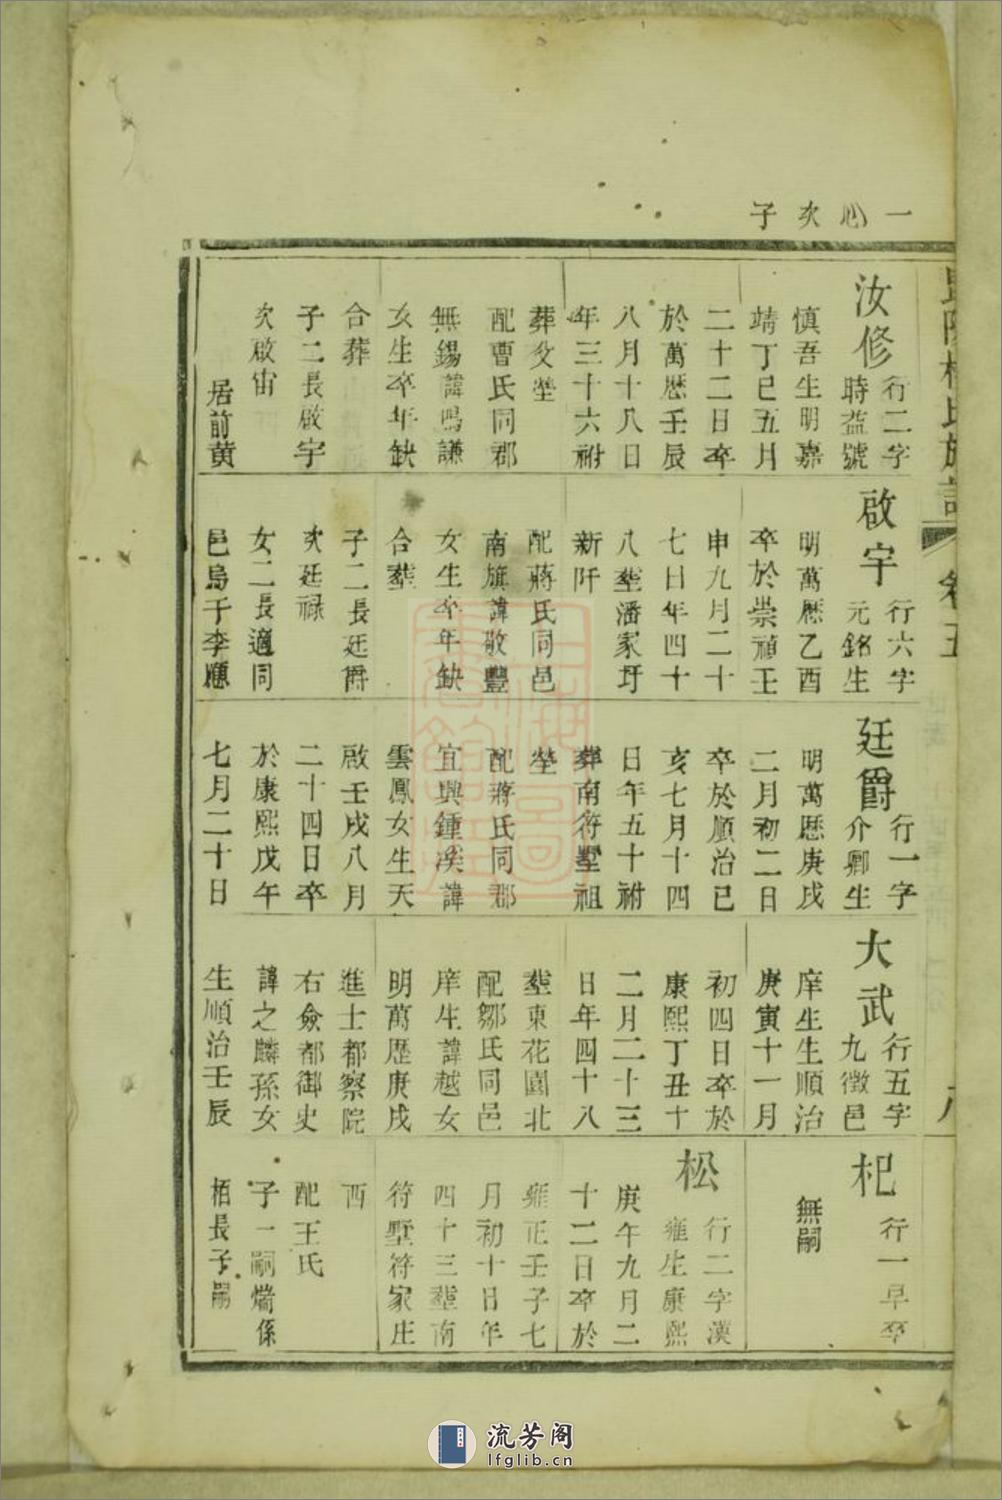 一心次子
汝修
行二字
時益號
慎吾生明嘉
靖丁巳五月
二十二日卒
於萬歷壬辰
八月十八日
年三十六祔
葬父塋
配曹氏同郡
無錫諱鳴謙
女生卒年缺
合葬
子二長啟宇
次啟宙
居前黄
啟宇
行六字
元銘生
明萬歷乙酉
卒於崇禎壬
申九月二十
七日年四十
八塟潘家圩
新阡
配蔣氏同邑
南旗諱敬豐
女生卒年缺
合塟
子二長廷爵
次廷禄
女二長適同
邑烏于李應
廷爵
行一字
介卿生
明萬歷庚戌
二月初二日
卒於順治己
亥七月十四
日年五十祔
葬南符墅祖
塋
配蔣氏同郡
宜興鍾溪諱
雲鳳女生天
啟壬戌八月
二十四日卒
於康熙戊午
七月二十日
大武
行五字
九徵邑
庠生生順治
庚寅十一月
初四日卒於
康熙丁丑十
二月二十三
日年四十八
塟東花園北
配鄒氏同邑
庠生諱越女
明萬歷庚戌
進士都察院
右僉都御史
諱之麟孫女
生順治壬辰
杞
行一早卒
無嗣
松
行二字漢
雍生康熙
庚午九月二
十二日卒於
雍正壬子七
月初十日年
四十三塟南
符墅符家庄
西
配王氏
子一嗣爝係
栢長子嗣
流芳阁
lfglib.cn